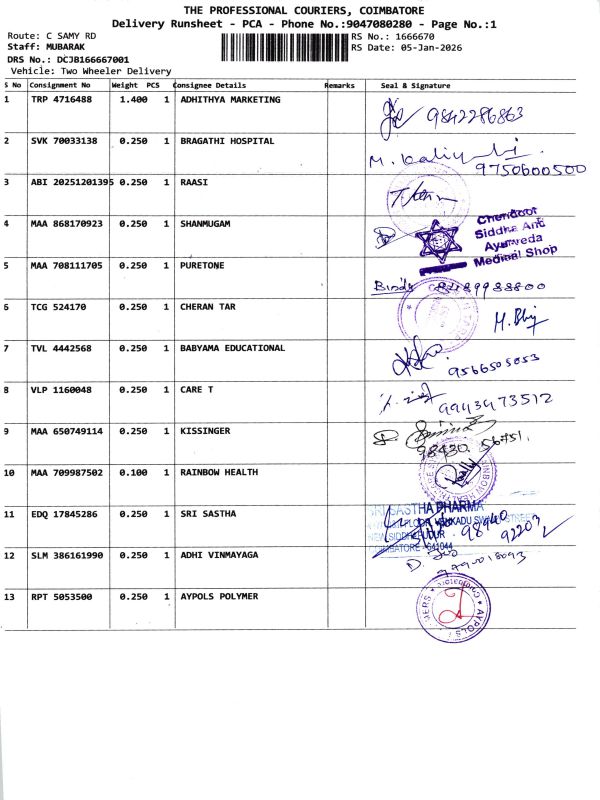 THE PROFESSIONAL COURIERS, COIMBATORE
Delivery Runsheet - PCA - Phone No.:9047080280 - Page No.:1
Route: C SAMY RD RS No.: 1666670
Staff: MUBARAK RS Date: 05-Jan-2026
DRS No.: DCJB166667001
Vehicle: Two Wheeler Delivery
S No Consignment No Weight PCS Consignee Details Remarks Seal & Signature
1 TRP 4716488 1.400 1 ADHITHYA MARKETING
9842286863
2 SVK 70033138 0.250 1 BRAGATHI HOSPITAL
9750600500
3 ABI 20251201395 0.250 1 RAASI
4 MAA 868170923 0.250 1 SHANMUGAM
Chendoor
Siddha And
Ayurveda
Medical Shop
5 MAA 708111705 0.250 1 PURETONE
6 TCG 524170 0.250 1 CHERAN TAR
7 TVL 4442568 0.250 1 BABYAMA EDUCATIONAL
9566505053
8 VLP 1160048 0.250 1 CARE T
9943473512
9 MAA 650749114 0.250 1 KISSINGER
98430 56751
10 MAA 709987502 0.100 1 RAINBOW HEALTH
11 EDQ 17845286 0.250 1 SRI SASTHA
SRI SASTHA PHARMA
98940
92203
COIMBATORE - 641044
12 SLM 386161990 0.250 1 ADHI VINMAYAGA
13 RPT 5053500 0.250 1 AYPOLS POLYMER
AYPOLS